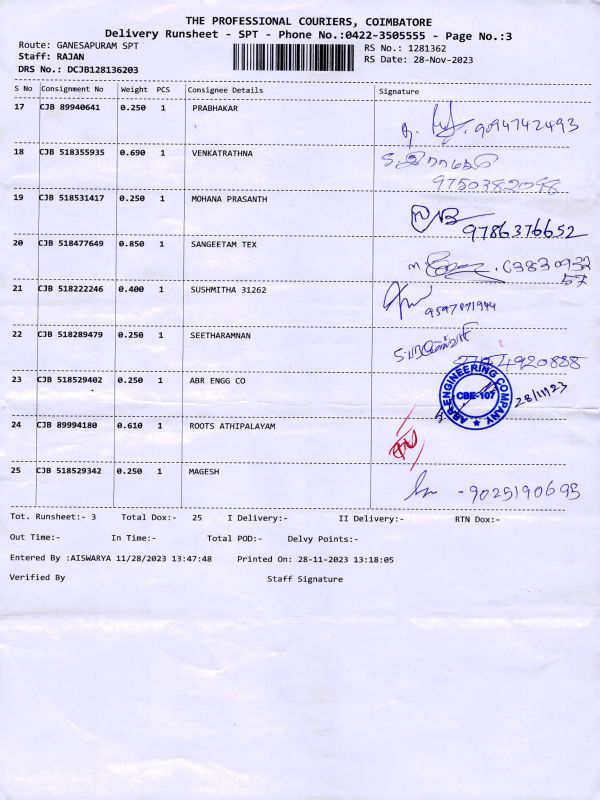 THE PROFESSIONAL COURIERS, COIMBATORE
Delivery Runsheet - SPT - Phone No.:0422-3505555 - Page No.:3
Route: GANESAPURAM SPT RS No.: 1281362
Staff: RAJAN RS Date: 28-Nov-2023
DRS No.: DCJB128136203
S No Consignment No Weight PCS Consignee Details Signature
17 CJB 89940641 0.250 1 PRABHAKAR 9094742493
18 CJB 518355935 0.690 1 VENKATRATHNA
9750382098
19 CJB 518531417 0.250 1 MOHANA PRASANTH
9786376652
20 CJB 518477649 0.850 1 SANGEETAM TEX
57
21 CJB 518222246 0.400 1 SUSHMITHA 31262
22 CJB 518289479 0.250 1 SEETHARAMNAN
23 CJB 518529402 0.250 1 ABR ENGG CO
ABR ENGINEERING COMPANY
CBE-107
28/11/23
24 CJB 89994180 0.610 1 ROOTS ATHIPALAYAM
25 CJB 518529342 0.250 1 MAGESH
- 9025190695
Tot. Runsheet:- 3 Total Dox:- 25 I Delivery:- II Delivery:- RTN Dox:-
Out Time:- In Time:- Total POD:- Delvy Points:-
Entered By :AISWARYA 11/28/2023 13:47:48 Printed On: 28-11-2023 13:18:05
Verified By Staff Signature